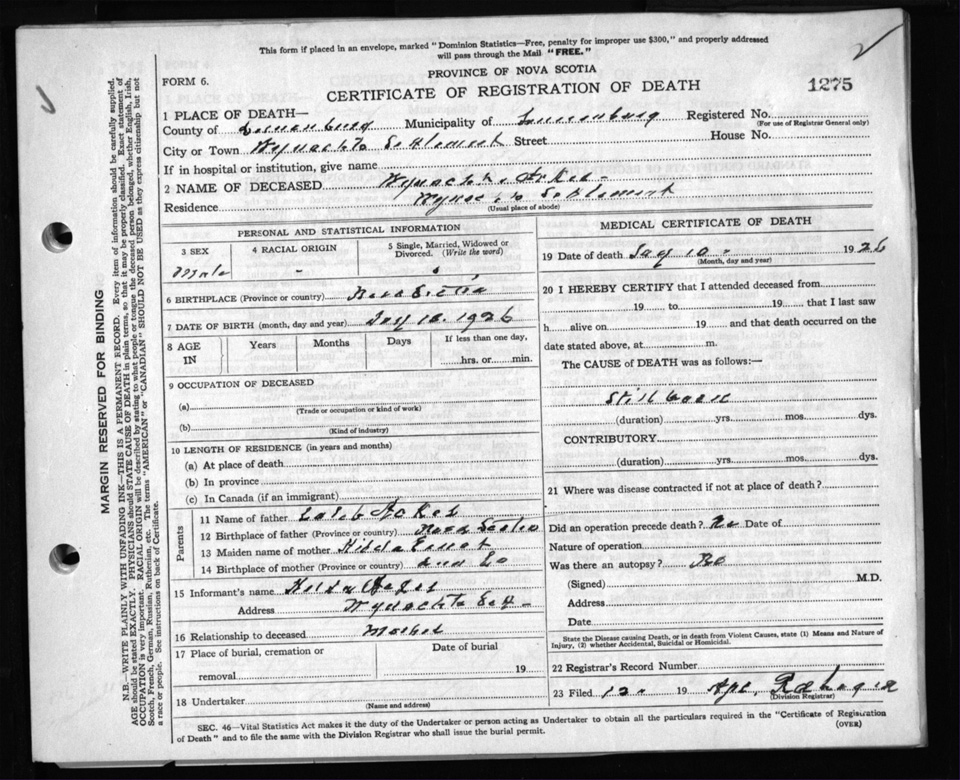 This form if placed in an envelope, marked "Dominion Statistics—Free, penalty for improper use $300," and properly addressed
will pass through the Mail "FREE."
PROVINCE OF NOVA SCOTIA
FORM 6.
CERTIFICATE OF REGISTRATION OF DEATH
1275
1 PLACE OF DEATH—
County of Lunenburg Municipality of Lunenburg Registered No.
(For use of Registrar General only)
City or Town Wynacht Settlement Street House No.
If in hospital or institution, give name
2 NAME OF DECEASED
Residence Settlement
(Usual place of abode)
PERSONAL AND STATISTICAL INFORMATION
3 SEX
4 RACIAL ORIGIN
5 Single, Married, Widowed or
Divorced. (Write the word)
Male -
6 BIRTHPLACE (Province or country) Nova Scotia
7 DATE OF BIRTH (month, day and year) 1926
8 AGE
IN
Years
Months
Days
If less than one day,
hrs. or min.
9 OCCUPATION OF DECEASED
(a)
(Trade or occupation or kind of work)
(b)
(Kind of industry)
10 LENGTH OF RESIDENCE (in years and months)
(a) At place of death
(b) In province
(c) In Canada (if an immigrant)
Parents
11 Name of father
12 Birthplace of father (Province or country) Nova Scotia
13 Maiden name of mother Hilda Ernst
14 Birthplace of mother (Province or country)
15 Informant's name
Address
16 Relationship to deceased Mother
17 Place of burial, cremation or
removal
Date of burial
19
18 Undertaker
(Name and address)
MEDICAL CERTIFICATE OF DEATH
19 Date of death 1926
(Month, day and year)
20 I HEREBY CERTIFY that I attended deceased from
19 to 19 that I last saw
h alive on 19 and that death occurred on the
date stated above, at m.
The CAUSE of DEATH was as follows:—
Still born
(duration) yrs. mos. dys.
CONTRIBUTORY
(duration) yrs. mos. dys.
21 Where was disease contracted if not at place of death?
Did an operation precede death? No Date of
Nature of operation
Was there an autopsy? No
(Signed) M.D.
Address
Date
State the Disease causing Death, or in death from Violent Causes, state (1) Means and Nature of
Injury, (2) whether Accidental, Suicidal or Homicidal.
22 Registrar's Record Number
23 Filed 19
(Division Registrar)
SEC. 46—Vital Statistics Act makes it the duty of the Undertaker or person acting as Undertaker to obtain all the particulars required in the "Certificate of Registration
of Death" and to file the same with the Division Registrar who shall issue the burial permit.
(OVER)
MARGIN RESERVED FOR BINDING
N.B.—WRITE PLAINLY WITH UNFADING INK—THIS IS A PERMANENT RECORD. Every item of information should be carefully supplied.
AGE should be stated EXACTLY. PHYSICIANS should STATE CAUSE OF DEATH in plain terms, so that it may be properly classified. Exact statement of
OCCUPATION is very important. RACIAL ORIGIN will be described by stating to what people or tongue the deceased person belonged, whether English, Irish,
Scotch, French, German, Russian, Ruthenian, etc. The terms "AMERICAN" or "CANADIAN" SHOULD NOT BE USED as they express citizenship but not
a race or people. See instructions on back of Certificate.